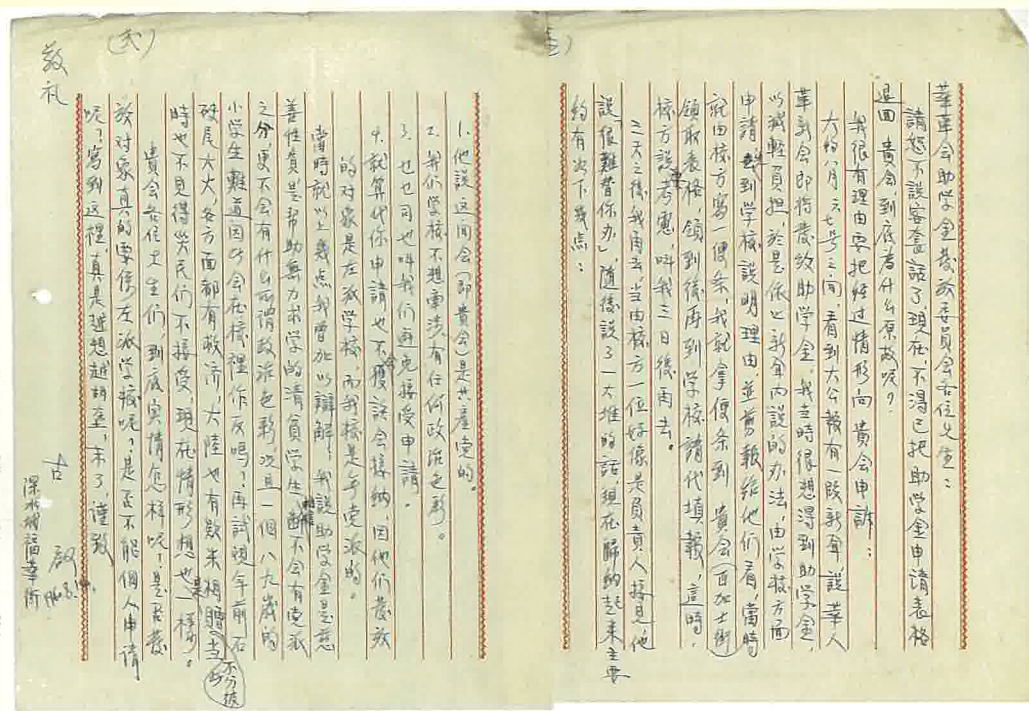 (壹)
華革会助学金發放委員会各位先生：
請恕不說客套話了，現在，不得已把助学金申請表格
退回 貴会到底為什么原故呢？
我很有理由要把經过情形向 貴会申訴：
大約八月六七号之间，看到大公報有一段新聞說華人
革新会即将發放助学金，我当時很想得到助学金，
以減輕負担於是依照新闻内說的办法，由学校方面
申請，到学校說明理由，並剪報給他们看，當時
就由校方寫一便条，我就拿便条到 貴会(西加士街)
領取表格，領到後再到学校請代填報，這時
校方說要考慮，叫我三日後再去。
三天之後我再去，当由校方一位好像是負責人接見，他
說「很難替你办」，随後說了一大堆的話，現在歸納起来主要
約有以下幾点：
(弍)
1.他說这间会(即貴会)是共產党的。
2.我们学校不想牽涉有任何政治色彩。
3.也也司也叫我们避免接受申請。
4.就算代你申請也不會獲該会接納，因他们發放
的对象是左派学校，而我校是乎党派的。
當時就以上幾点我曾加以辯解，我說助学金是慈
善性質，是帮助無力求学的清貧学生，相信不会有党派
之分，更不会有什么所谓政治色彩，况且一個八九歲的
小学生難道因此会在校裡作反嗎？再試視年前石
硤尾大火，各方面都有救济，大陸也有款米相贈，当
時也不見得災民们不接受，現在情形想也是一樣。
不分彼此
貴会各位先生们，到底实情怎样呢？是否發
放对象真的要係左派学校呢？是否不能個人申請
呢？寫到这裡，真是越想越胡塗，未了，謹致
敬礼
古 啟
深水埗福華街